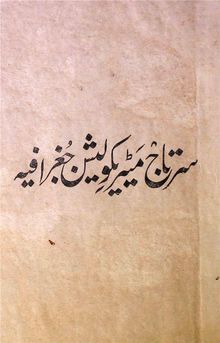 سرتاج میٹریکولیشن جغرافیہ